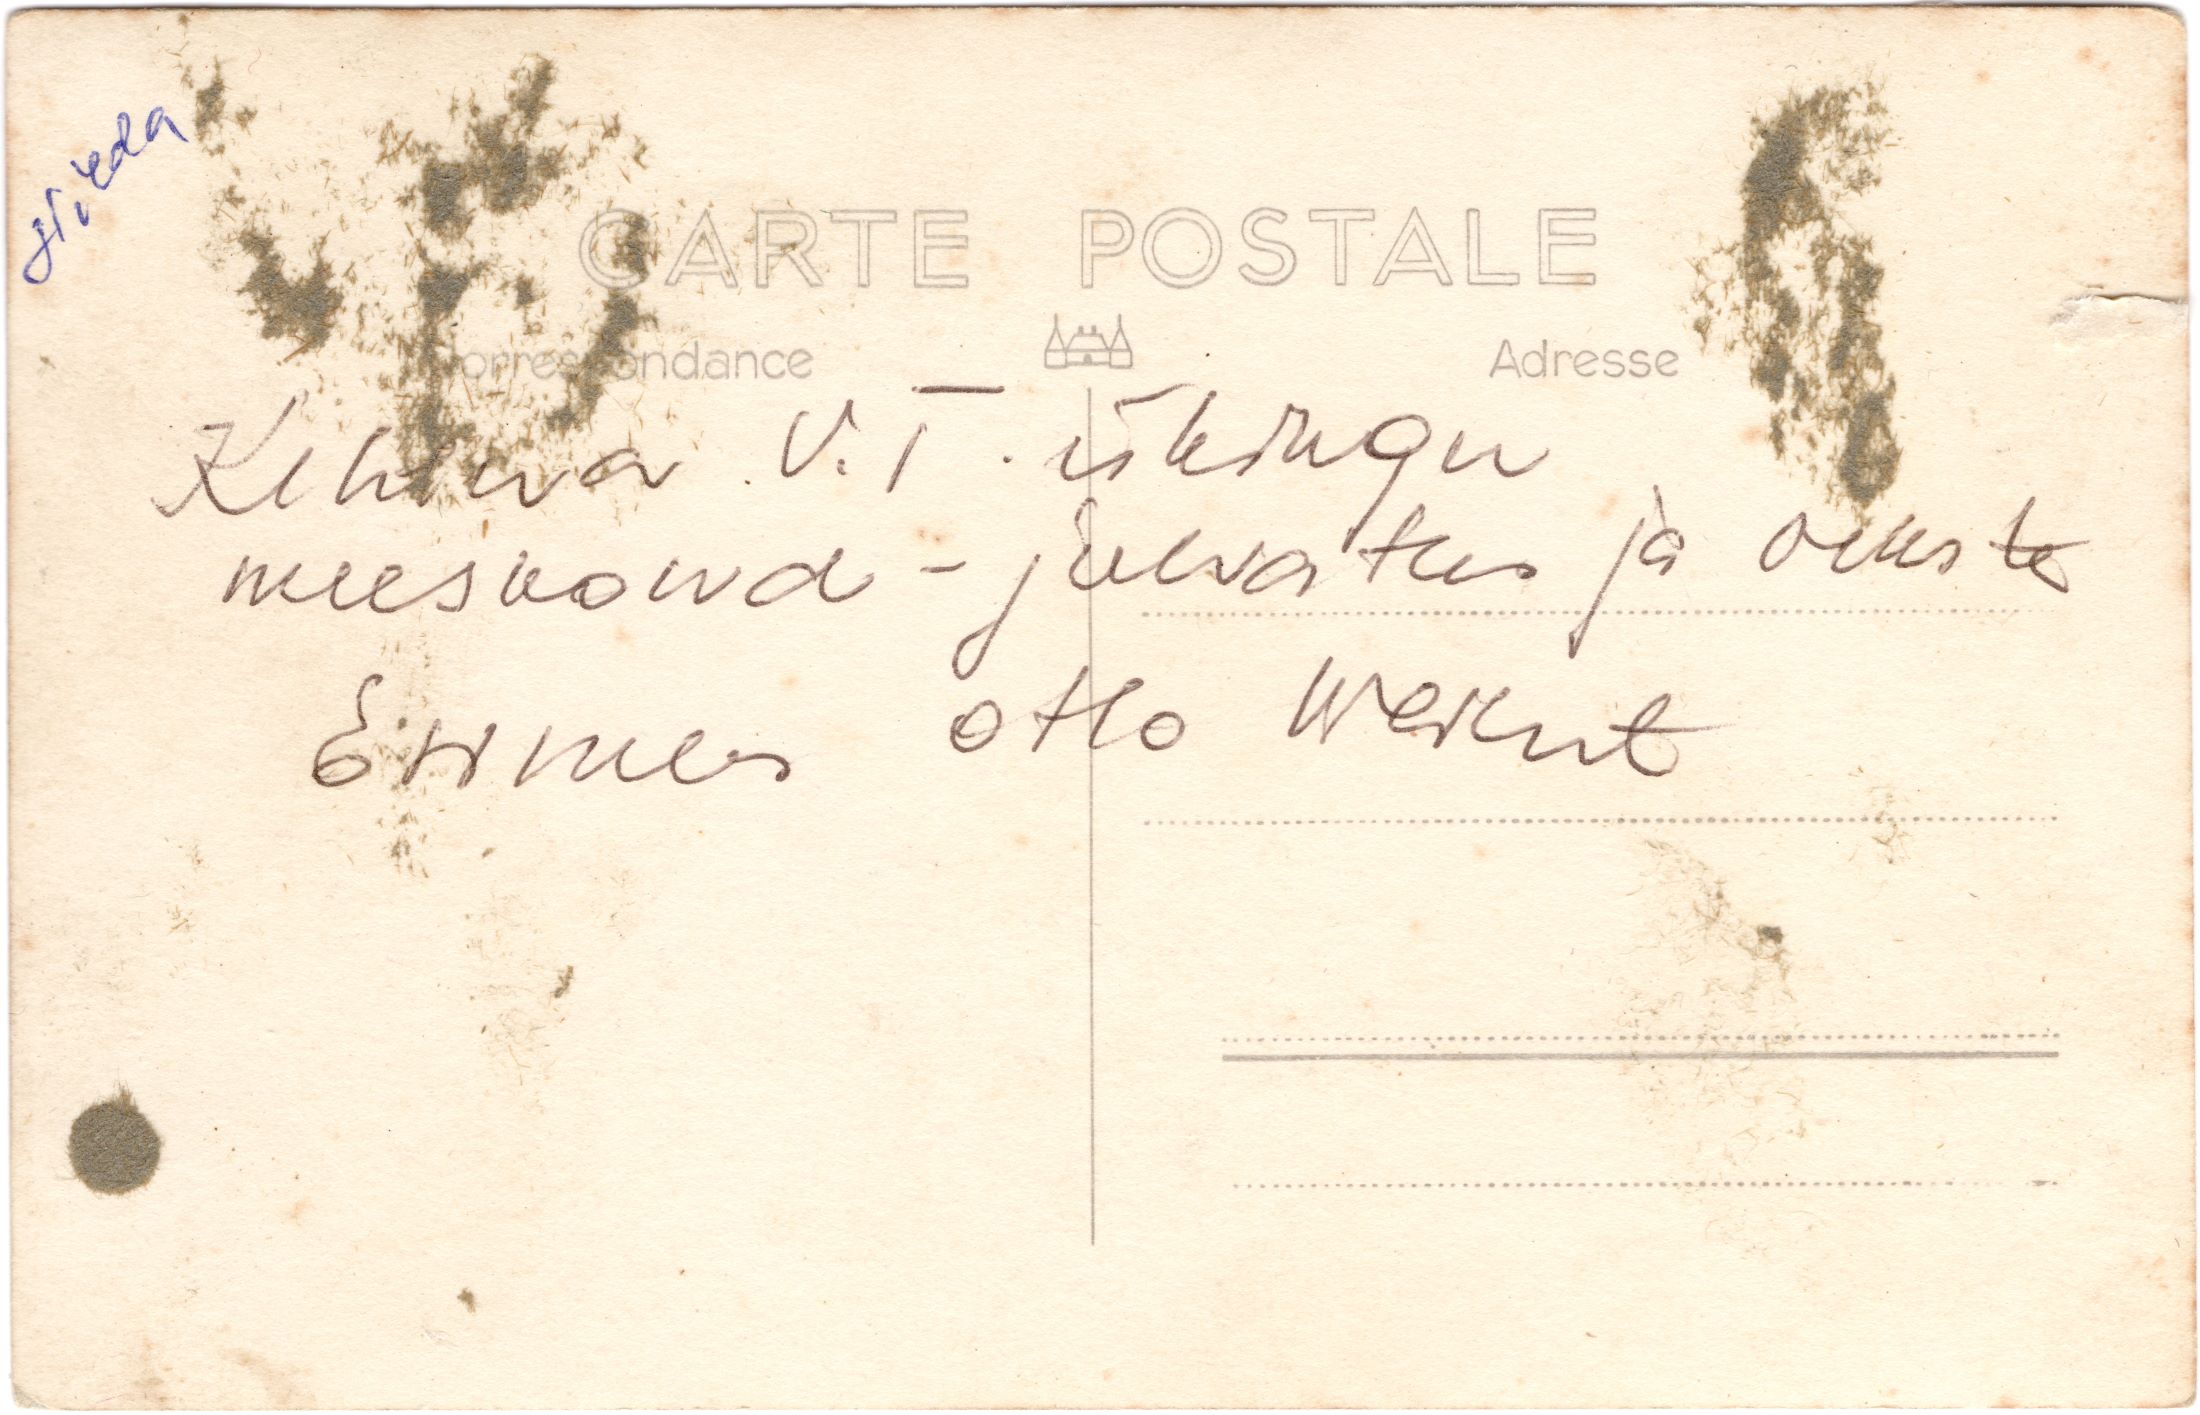 Hilda
CARTE POSTALE
Correspondance
Adresse
Kehtna V.T. ühingu
meeskond - juhatus ja
Esimees Otto